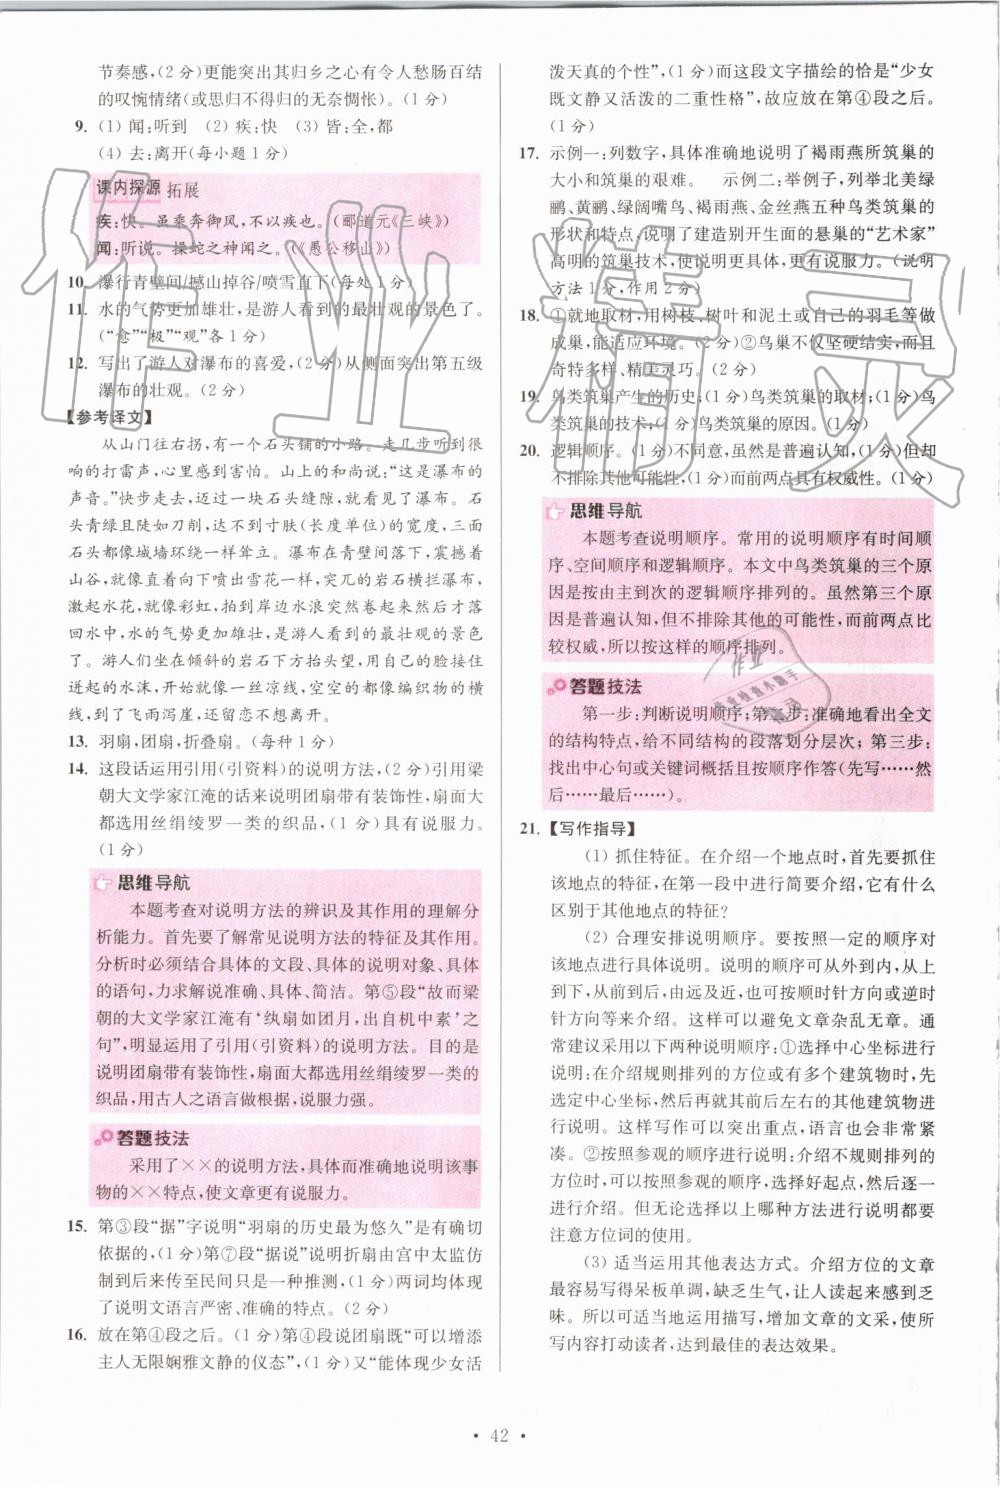 节奏感,(2分)更能突出其归乡之心有令人愁肠百结
的叹惋情绪(或思归不得归的无奈惆怅)。(1分)
9. (1) 闻:听到　(2) 疾:快　(3) 皆:全,都
(4) 去:离开(每小题1分)
课内探源 拓展
疾:快。虽乘奔御风,不以疾也。(郦道元《三峡》)
闻:听说。操蛇之神闻之。(《愚公移山》)
10. 瀑行青壁间/撼山掉谷/喷雪直下(每处1分)
11. 水的气势更加雄壮,是游人看到的最壮观的景色了。
(“愈”“极”“观”各1分)
12. 写出了游人对瀑布的喜爱,(2分)从侧面突出第五级
瀑布的壮观。(2分)
【参考译文】
从山门往右拐,有一个石头铺的小路。走几步听到很
响的打雷声,心里感到害怕。山上的和尚说:“这是瀑布的
声音。”快步走去,迈过一块石头缝隙,就看见了瀑布。石
头青绿且陡如刀削,达不到寸肤(长度单位)的宽度,三面
石头都像城墙环绕一样耸立。瀑布在青壁间落下,震撼着
山谷,就像雪直着向下喷出雪花一样,突兀的岩石横拦瀑布,
激起水花,就像彩虹,拍到岸边水浪突然卷起来然后才落
回水中,水的气势更加雄壮,是游人看到的最壮观的景色
了。游人们坐在倾斜的岩石下方抬头望,用自己的脸接住
迸起的水沫,开始就像一丝凉线,空空的都像编织物的横
线,到了飞雨泻崖,还留恋不肯离开。
13. 羽扇,团扇,折叠扇。(每种1分)
14. 这段话运用引用(引资料)的说明方法,(2分)引用梁
朝大文学家江淹的话来说明团扇带有装饰性,扇面大
都选用丝绢绫罗一类的织品,(1分)具有说服力。
(1分)
思维导航
本题考查对说明方法的辨识及其作用的理解分
析能力。首先要了解常见说明方法的特征及其作用。
分析时必须结合具体的文段、具体的说明对象、具体
的语句,力求解说准确、具体、简洁。第⑤段“故而梁
朝的大文学家江淹有‘纨扇如团月,出自机中素’之
句”,明显运用了引用(引资料)的说明方法。目的是
说明团扇带有装饰性,扇面大都选用丝绢绫罗一类的
织品,用古人之语言做根据,说服力强。
答题技法
采用了××的说明方法,具体而准确地说明该事
物的××特点,使文章更有说服力。
15. 第③段“据”字说明“羽扇的历史最为悠久”是有确切
依据的,(1分)第⑦段“据说”说明折扇由宫中太监仿
制到后来传至民间只是一种推测,(1分)两词均体现
了说明文语言严密、准确的特点。(2分)
16. 放在第④段之后。(1分)第④段说团扇既“可以增添
主人无限娴雅文静的仪态”,(1分)又“能体现少女活
泼天真的个性”,(1分)而这段文字描绘的恰是“少女
既文静又活泼的二重性格”,故应放在第④段之后。
(1分)
17. 示例一:列数字,具体准确地说明了褐雨燕所筑巢的
大小和筑巢的艰难。　示例二:举例子,列举北美绿
鹏、黄鹏、绿阔嘴鸟、褐雨燕、金丝燕五种鸟类筑巢的
形状和特点,说明了建造别开生面的悬巢的“艺术家”
高明的筑巢技术,使说明更具体,更有说服力。(说明
方法1分,作用2分)
18. ①就地取材,用树枝、树叶和泥土或自己的羽毛等做
成巢,能适应环境。(2分)②鸟巢不仅坚硬美观,而且
奇特多样、精美灵巧。(2分)
19. 鸟类筑巢产生的历史;(1分)鸟类筑巢的取材;(1分)鸟
类筑巢的技术;(1分)鸟类筑巢的原因。(1分)
20. 逻辑顺序。(1分)不同意,虽然是普遍认知,(1分)但却
不排除其他可能性,(1分)而前两点具有权威性。(1分)
思维导航
本题考查说明顺序。常用的说明顺序有时间顺
序、空间顺序和逻辑顺序。本文中鸟类筑巢的三个原
因是按由主到次的逻辑顺序排列的。虽然第三个原
因是普遍认知,但不排除其他的可能性,而前两点比
较权威,所以按这样的顺序排列。
答题技法
第一步:判断说明顺序;第二步:准确地看出全文
的结构特点,给不同结构的段落划分层次;第三步:
找出中心句或关键词概括且按顺序作答(先写……然
后……最后……)。
21. 【写作指导】
(1) 抓住特征。在介绍一个地点时,首先要抓住
该地点的特征,在第一段中进行简要介绍,它有什么
区别于其他地点的特征?
(2) 合理安排说明顺序。要按照一定的顺序对
该地点进行具体说明。说明的顺序可从外到内,从上
到下,从前到后,由远及近,也可按顺时针方向或逆时
针方向等来介绍。这样可以避免文章杂乱无章。通
常建议采用以下两种说明顺序:①选择中心坐标进行
说明:在介绍规则排列的方位或有多个建筑物时,先
选定中心坐标,然后再就其前后左右的其他建筑物进
行说明。这样写作可以突出重点,语言也会非常紧
凑。②按照参观的顺序说明:介绍不规则排列的方
位时,可按照参观的顺序,选择好起点,然后逐一
进行介绍。但无论选择以上哪种方法进行说明都要
注意方位词的使用。
(3) 适当运用其他表达方式。介绍方位的文章
最容易写得呆板单调,缺乏生气,让人读起来感到乏
味。所以可适当地运用描写,增加文章的文采,使所
写内容打动读者,达到最佳的表达效果。
• 42 •
作业精灵